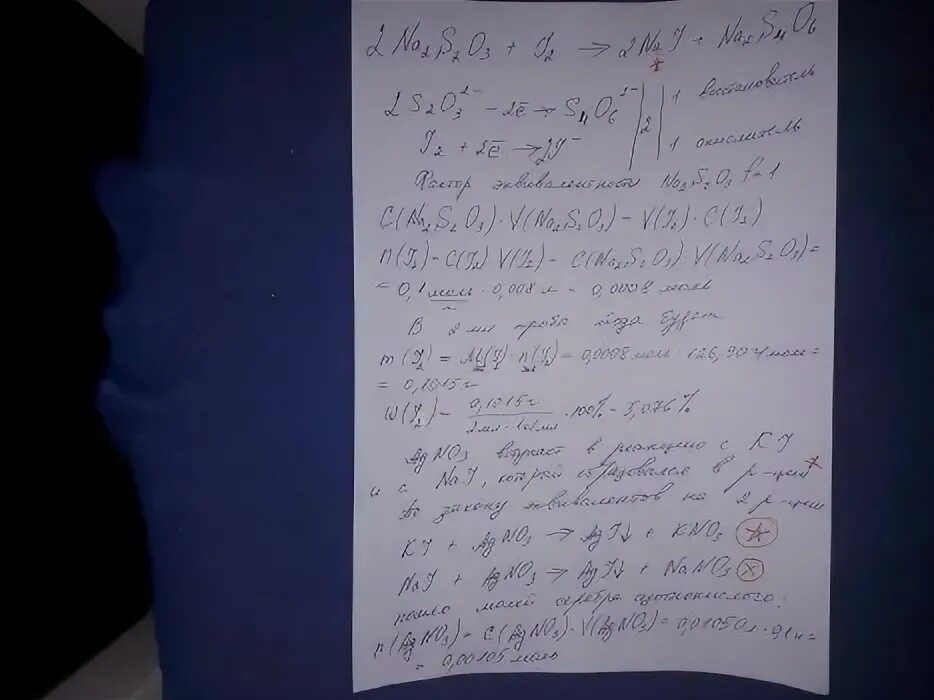 2 Na2S2O3 + J2 → 2NaJ + Na2S4O6
*
2 S2O3²⁻ − 2ē → S4O6²⁻ | 2 | 1 восстановитель
J2 + 2ē → 2J⁻ | | 1 окислитель
Фактор эквивалентности Na2S2O3 f=1
C(Na2S2O3)·V(Na2S2O3) = V(J2)·C(J2)
n(J2) = C(J2) V(J2) = C(Na2S2O3)·V(Na2S2O3) =
= 0,1 моль/л · 0,008 л = 0,0008 моль
В 2 мл пробы йода будет
m(J2) = M(J)·n(J2) = 0,0008 моль · 126,90 г/моль =
= 0,1015 г
W(J2) = 0,1015 г / 2 мл · 100% = 5,076%
AgNO3 вступает в реакцию с KJ
и с NaJ, который образовался в р-ции *
По закону эквивалентов на 2 р-ции
KJ + AgNO3 → AgJ↓ + KNO3 *
NaJ + AgNO3 → AgJ↓ + NaNO3 ×
пошло молей серебра азотнокислого:
n(AgNO3) = C(AgNO3)·V(AgNO3) = 0,01050 л · 0,1 н =
= 0,00105 моль